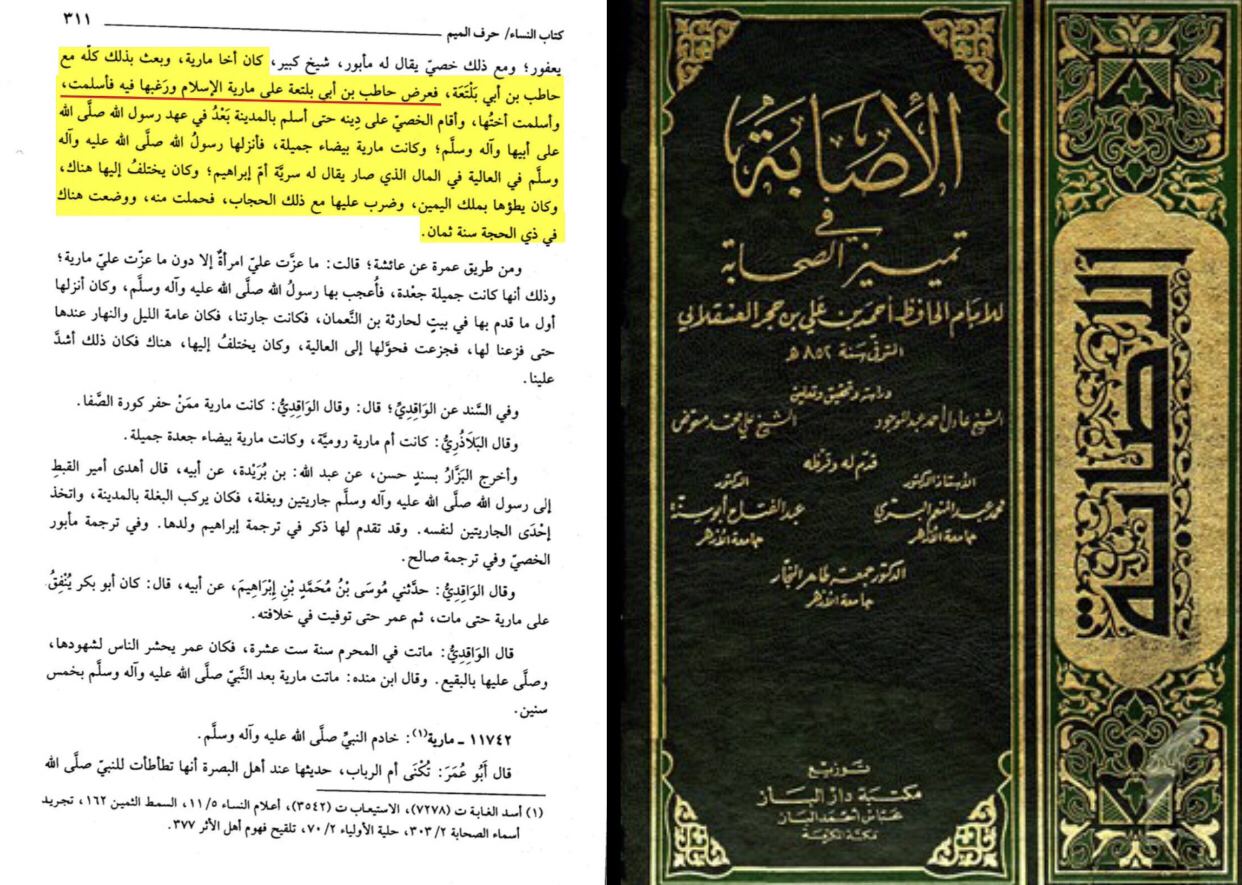 ٣١١
كتاب النساء/ حرف الميم
يعفور؛ ومع ذلك خصيّ يقال له مأبور، شيخ كبير، كان أخا مارية، وبعث بذلك كلّه مع
حاطب بن أبي بَلْتَعَة، فعرض حاطب بن أبي بلتعة على مارية الإسلام ورَغبها فيه فأسلمت،
وأسلمت أختُها، وأقام الخصيّ على دِينه حتى أسلم بالمدينة بَعْدُ في عهد رسول الله صلَّى الله
على أبيها وآله وسلَّم؛ وكانت مارية بيضاء جميلة، فأنزلها رسولُ الله صلَّى الله عليه وآله
وسلَّم في العالية في المال الذي صار يقال له سريَّة أمّ إبراهيم؛ وكان يختلفُ إليها هناك،
وكان يطؤها بملك اليمين، وضرب عليها مع ذلك الحجاب، فحملت منه، ووضعت هناك
في ذي الحجة سنة ثمان.
ومن طريق عمرة عن عائشة؛ قالت: ما عزَّت عليّ امرأةٌ إلا دون ما عزّت عليّ مارية؛
وذلك أنها كانت جميلة جعْدة، فأُعجب بها رسولُ الله صلَّى الله عليه وآله وسلَّم، وكان أنزلها
أول ما قدم بها في بيتٍ لحارثة بن النُّعمان، فكانت جارتنا، فكان عامة الليل والنهار عندها
حتى فزعنا لها، فجزعت فحوَّلها إلى العالية، وكان يختلفُ إليها، هناك فكان ذلك أشدَّ
علينا.
وفي السَّند عن الوَاقِديِّ؛ قال: وقال الوَاقِدِيُّ: كانت مارية ممَنْ حفر كورة الصَّفا.
وقال البَلَاذُرِيُّ: كانت أم مارية روميَّة، وكانت مارية بيضاء جعدة جميلة.
وأخرج البَزَّارُ بسندٍ حسن، عن عبد الله: بن بُرَيْدة، عن أبيه، قال أهدى أمير القبطِ
إلى رسول الله صلَّى الله عليه وآله وسلَّم جاريتين وبغلة، فكان يركب البغلة بالمدينة، واتخذ
إحْدَى الجاريتين لنفسه. وقد تقدم لها ذكر في ترجمة إبراهيم ولدها. وفي ترجمة مأبور
الخصيّ وفي ترجمة صالح.
وقال الوَاقِدِيُّ: حدَّثني مُوسَى بْنُ مُحَمَّدِ بْنِ إِبْرَاهِيمَ، عن أبيه، قال: كان أبو بكر يُنْفِقُ
على مارية حتى مات، ثم عمر حتى توفيت في خلافته.
قال الوَاقِدِيُّ: ماتت في المحرم سنة ست عشرة، فكان عمر يحشر الناس لشهودها،
وصلَّى عليها بالبقيع. وقال ابن منده: ماتت مارية بعد النَّبيّ صلَّى الله عليه وآله وسلَّم بخمس
سنين.
١١٧٤٢ ـ مارية(١): خادم النبيِّ صلَّى الله عليه وآله وسلَّم.
قال أَبُو عُمَرَ: تُكْنَى أم الرباب، حديثها عند أهل البصرة أنها تطأطأت للنبيّ صلَّى الله
(١) أسد الغابة ت (٧٢٧٨)، الاستيعاب ت (٣٥٤٢)، أعلام النساء ١١/٥، السمط الثمين ١٦٢، تجريد
أسماء الصحابة ٣٠٣/٢، حلية الأولياء ٧٠/٢، تلقيح فهوم أهل الأثر ٣٧٧.
الإصابة
في
تمييز الصحابة
للإمام الحافظ أحمد بن علي بن حجر العسقلاني
المتوفى سنة ٨٥٢ هـ
دراسة وتحقيق وتعليق
الشيخ عادل أحمد عبد الموجود
الشيخ علي محمد معوض
قدم له وقرظه
الأستاذ الدكتور
محمد عبد المنعم البري
جامعة الأزهر
الدكتور
عبد الفتاح أبو سنة
جامعة الأزهر
الدكتور جمعة طاهر النجار
جامعة الأزهر
توزيع
مكتبة دار الباز
عباس أحمد الباز
مكة المكرمة
الإصابة